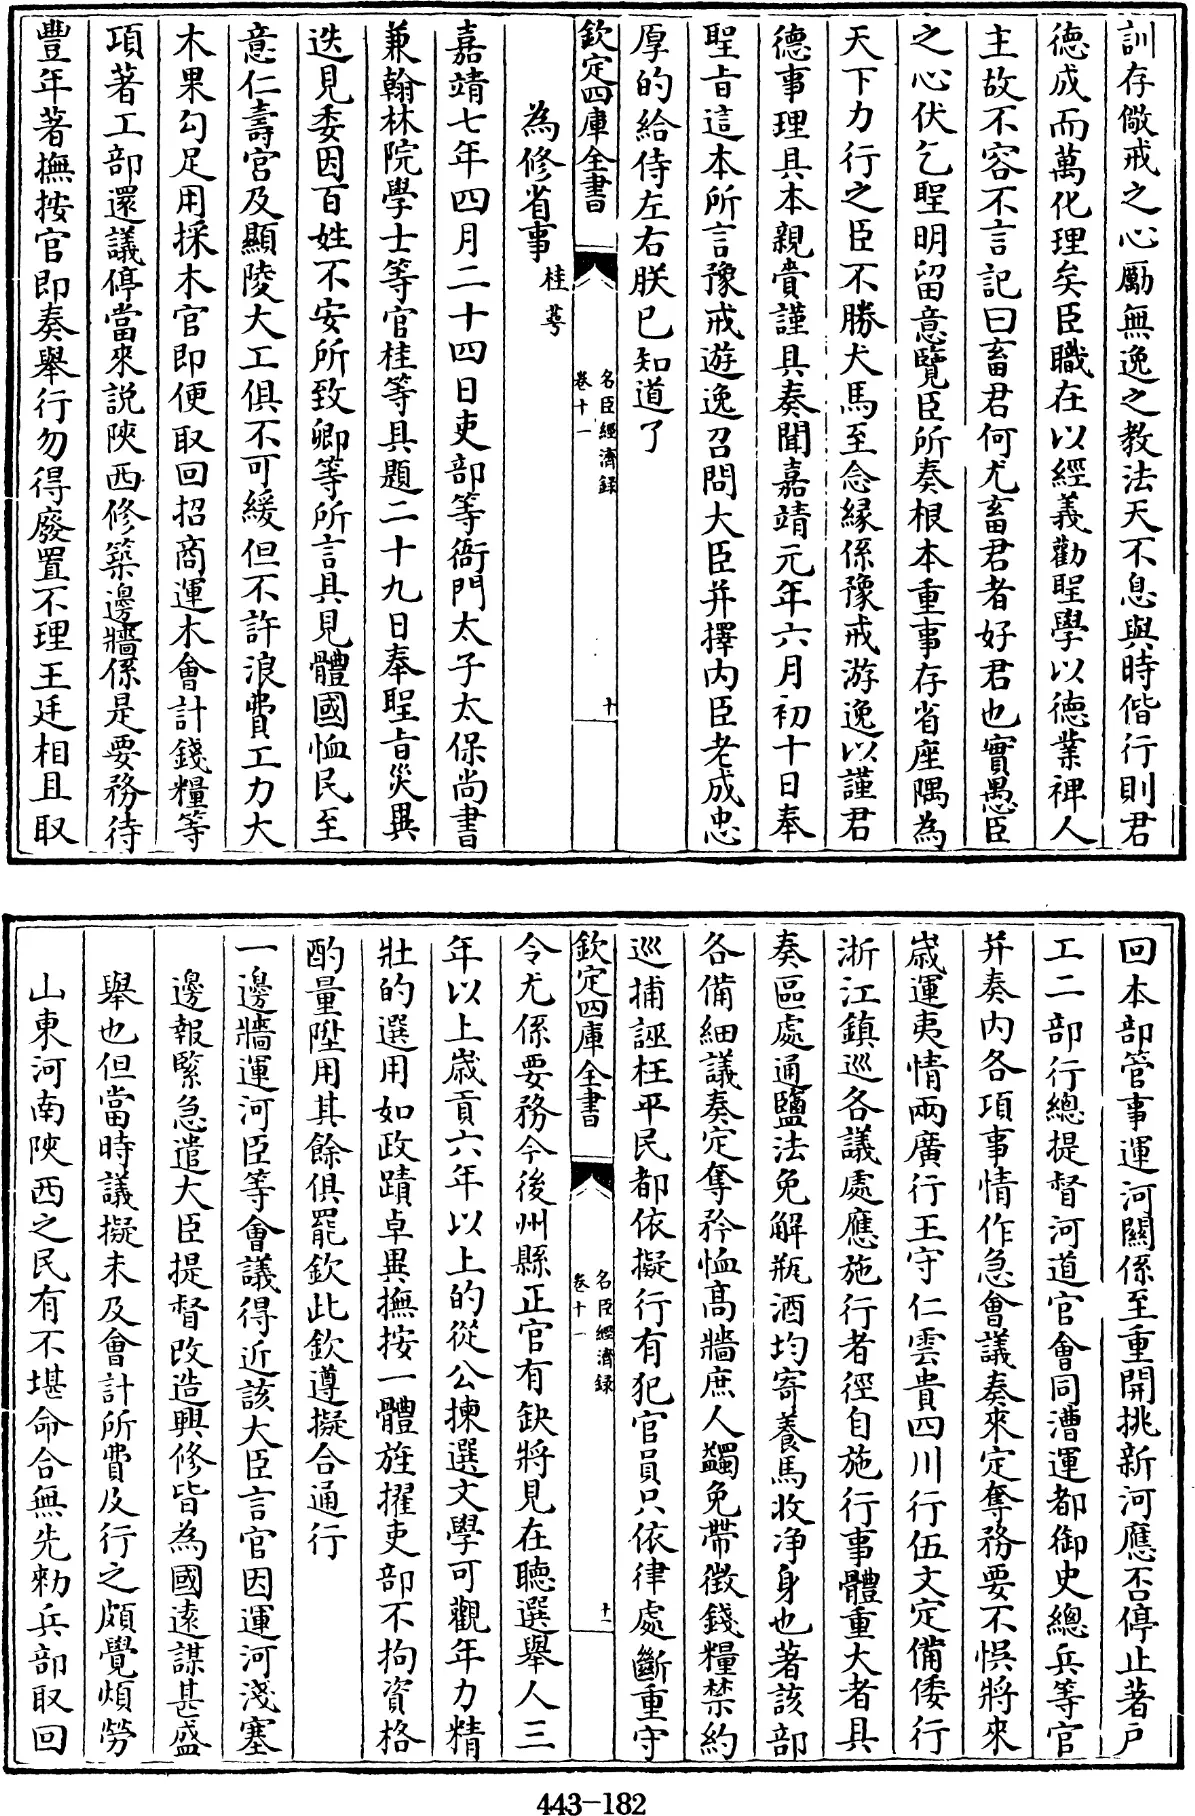 訓存儆戒之心勵無逸之教法天不息與時偕行則君
德成而萬化理矣臣職在以經義勸聖學以德業裨人
主故不容不言記曰畜君何尤畜君者好君也實愚臣
之心伏乞聖明留意覽臣所奏根本重事存省座隅為
天下力行之臣不勝犬馬至念緣係豫戒游逸以謹君
德事理具本親賫謹具奏聞嘉靖元年六月初十日奉
聖旨這本所言豫戒遊逸召問大臣并擇内臣老成忠
厚的給侍左右朕已知道了
欽定四庫全書
名臣經濟録
卷十一
十
為修省事
桂萼
嘉靖七年四月二十四日吏部等衙門太子太保尚書
兼翰林院學士等官桂等具題二十九日奉聖旨災異
迭見委因百姓不安所致卿等所言具見體國恤民至
意仁壽宮及顯陵大工俱不可緩但不許浪費工力大
木果勾足用採木官即便取回招商運木會計錢糧等
項著工部還議停當來説陜西修築邊牆係是要務待
豐年著撫按官即奏舉行勿得廢置不理王廷相且取
回本部管事運河關係至重開挑新河應否停止著户
工二部行總提督河道官會同漕運都御史總兵等官
并奏内各項事情作急會議奏來定奪務要不悞將來
歲運夷情兩廣行王守仁雲貴四川行伍文定備倭行
浙江鎮巡各議處應施行者徑自施行事體重大者具
奏區處通鹽法免解瓶酒均寄養馬收净身也著該部
各備細議奏定奪矜恤高牆庶人蠲免帶徴錢糧禁約
巡捕誣枉平民都依擬行有犯官員只依律處斷重守
欽定四庫全書
名臣經濟録
卷十一
十一
令尤係要務今後州縣正官有缺將見在聽選舉人三
年以上歲貢六年以上的從公揀選文學可觀年力精
壯的選用如政蹟卓異撫按一體旌擢吏部不拘資格
酌量陞用其餘俱罷欽此欽遵擬合通行
一邊牆運河臣等會議得近該大臣言官因運河淺塞
邊報緊急遣大臣提督改造興修皆為國遠謀甚盛
舉也但當時議擬未及會計所費及行之頗覺煩勞
山東河南陜西之民有不堪命合無先勑兵部取回
443-182